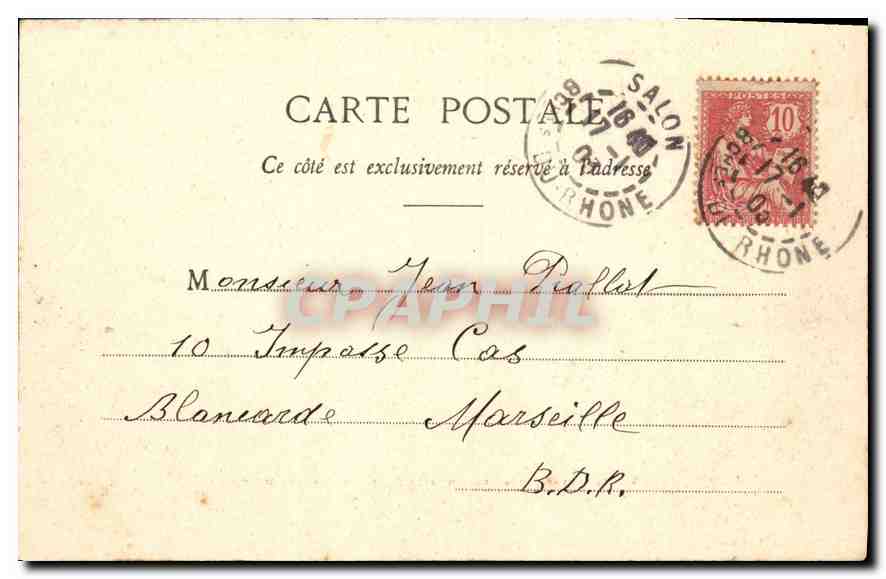 CARTE POSTALE
Ce côté est exclusivement réservé à l'adresse
SALON
BCHES DU-RHONE
16 40
17 -1
03
POSTES
10
BCHES DU RHONE
16 40
17 -1
03
Monsieur Jean Rallot
CPAPHIL
10 Impasse Cas
Blancarde Marseille
B.D.R.